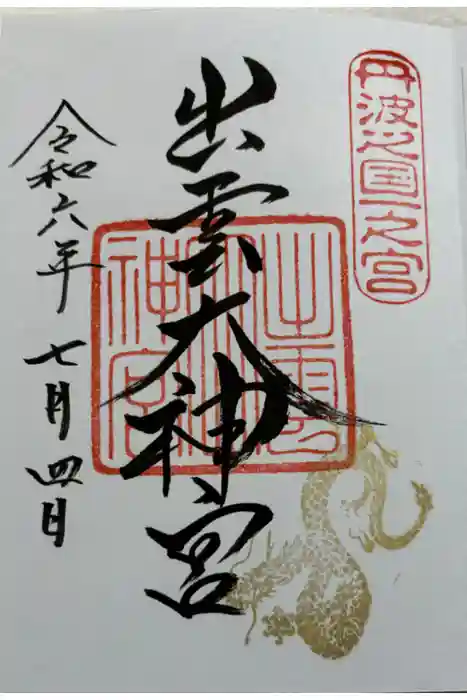 丹波之国一之宮
出雲大神宮
出雲大神宮
令和六年 七月四日